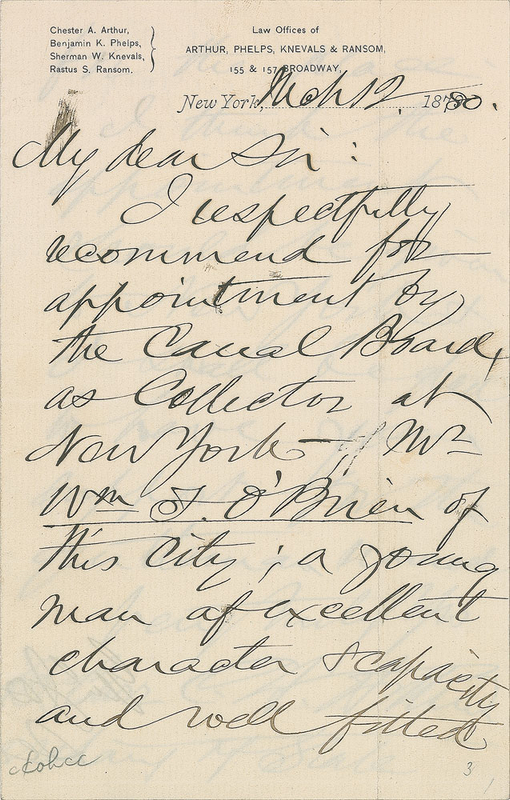 Chester A. Arthur,
Benjamin K. Phelps,
Sherman W. Knevals,
Rastus S. Ransom.
Law Offices of
ARTHUR, PHELPS, KNEVALS & RANSOM,
155 & 157 BROADWAY,
New York, Mch 12. 1880.
My dear Sir:
I respectfully
recommend for
appointment by
the Canal Board,
as Collector at
New York - Mr
Wm J. O'Brien of
this city; a young
man of excellent
character & capacity
and well fitted
3